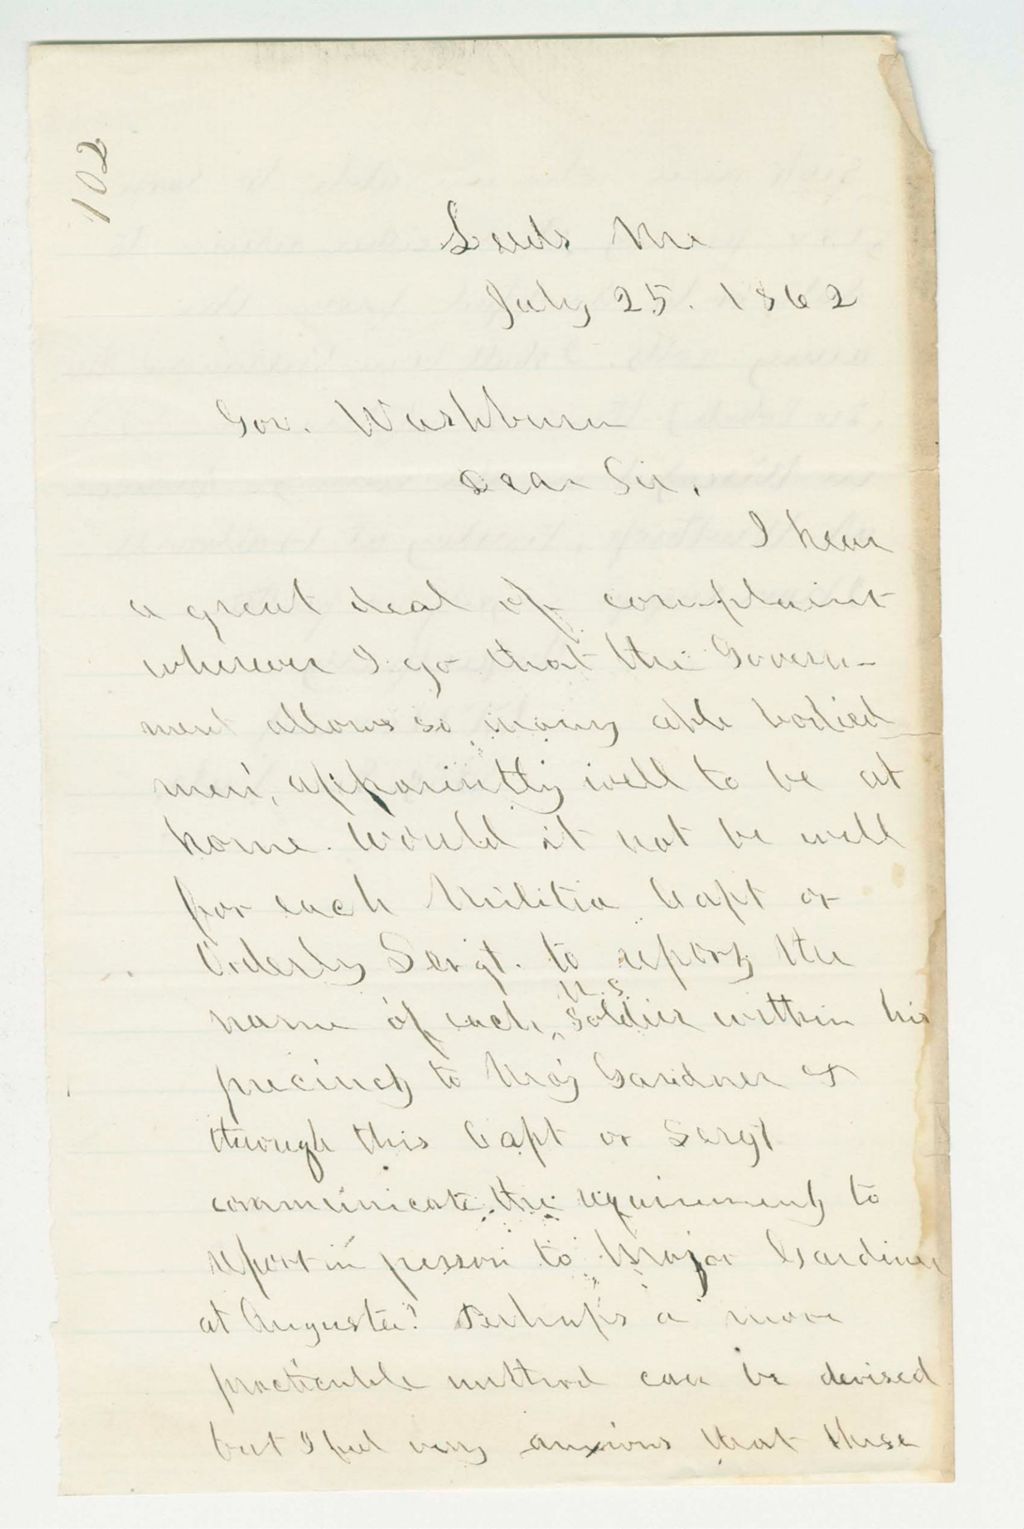 102
Leeds Me
July 25. 1862
Gov. Washburn
Dear Sir,
I hear
a great deal of complaint
wherever I go that the Govern-
ment allows so many able bodied
men, apparently well to be at
home. Would it not be well
for each Militia Capt or
Orderly Sergt. to report the
U.S.
name of each ^ soldier within his
precinct to Maj Gardner &
through this Capt or Sergt
communicate the requirement to
report in person to Major Gardiner
at Augusta? Perhaps a more
practicable method can be devised
but I feel very anxious that these